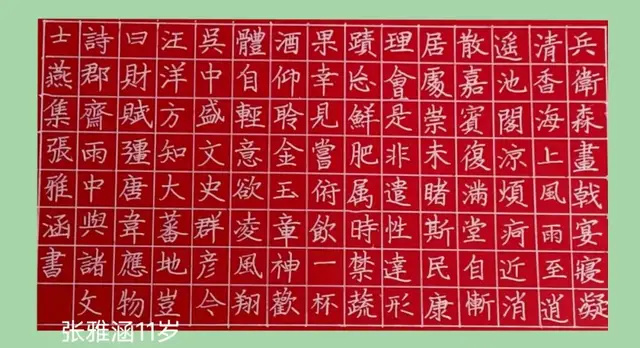 兵衛森畫戟宴寢凝
清香海上風雨至逍
遥池閣涼煩疴近消
散嘉賓復滿堂自慚
居處崇未睹斯民康
理會是非遣性達形
蹟忘鮮肥属時禁蔬
果幸見嘗俯飲一杯
酒仰聆金玉章神歡
體自輕意欲凌風翔
吳中盛文史群彦今
汪洋方知大蕃地豈
曰財賦彊唐韋應物
詩郡齋雨中與諸文
士燕集張雅涵書
张雅涵11岁